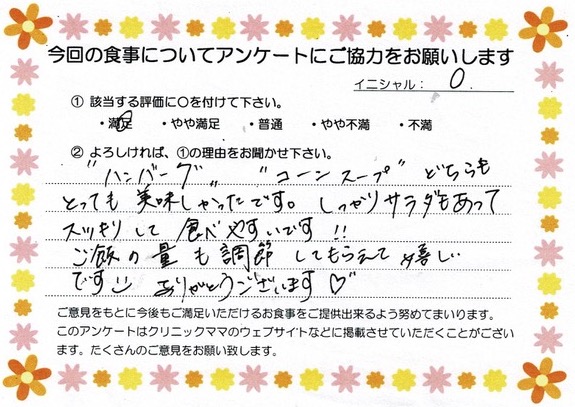 今回の食事についてアンケートにご協力をお願いします
イニシャル： O.
① 該当する評価に○を付けて下さい。
・満足 ・やや満足 ・普通 ・やや不満 ・不満
② よろしければ、①の理由をお聞かせ下さい。
"ハンバーグ" "コーンスープ" どちらも
とっても美味しかったです。しっかりサラダもあって
スッキリして食べやすいです!!
ご飯の量も調節してもらえて嬉しい
です ありがとうございます♡"
ご意見をもとに今後もご満足いただけるお食事をご提供出来るよう努めてまいります。
このアンケートはクリニックママのウェブサイトなどに掲載させていただくことがござい
ます。たくさんのご意見をお願い致します。